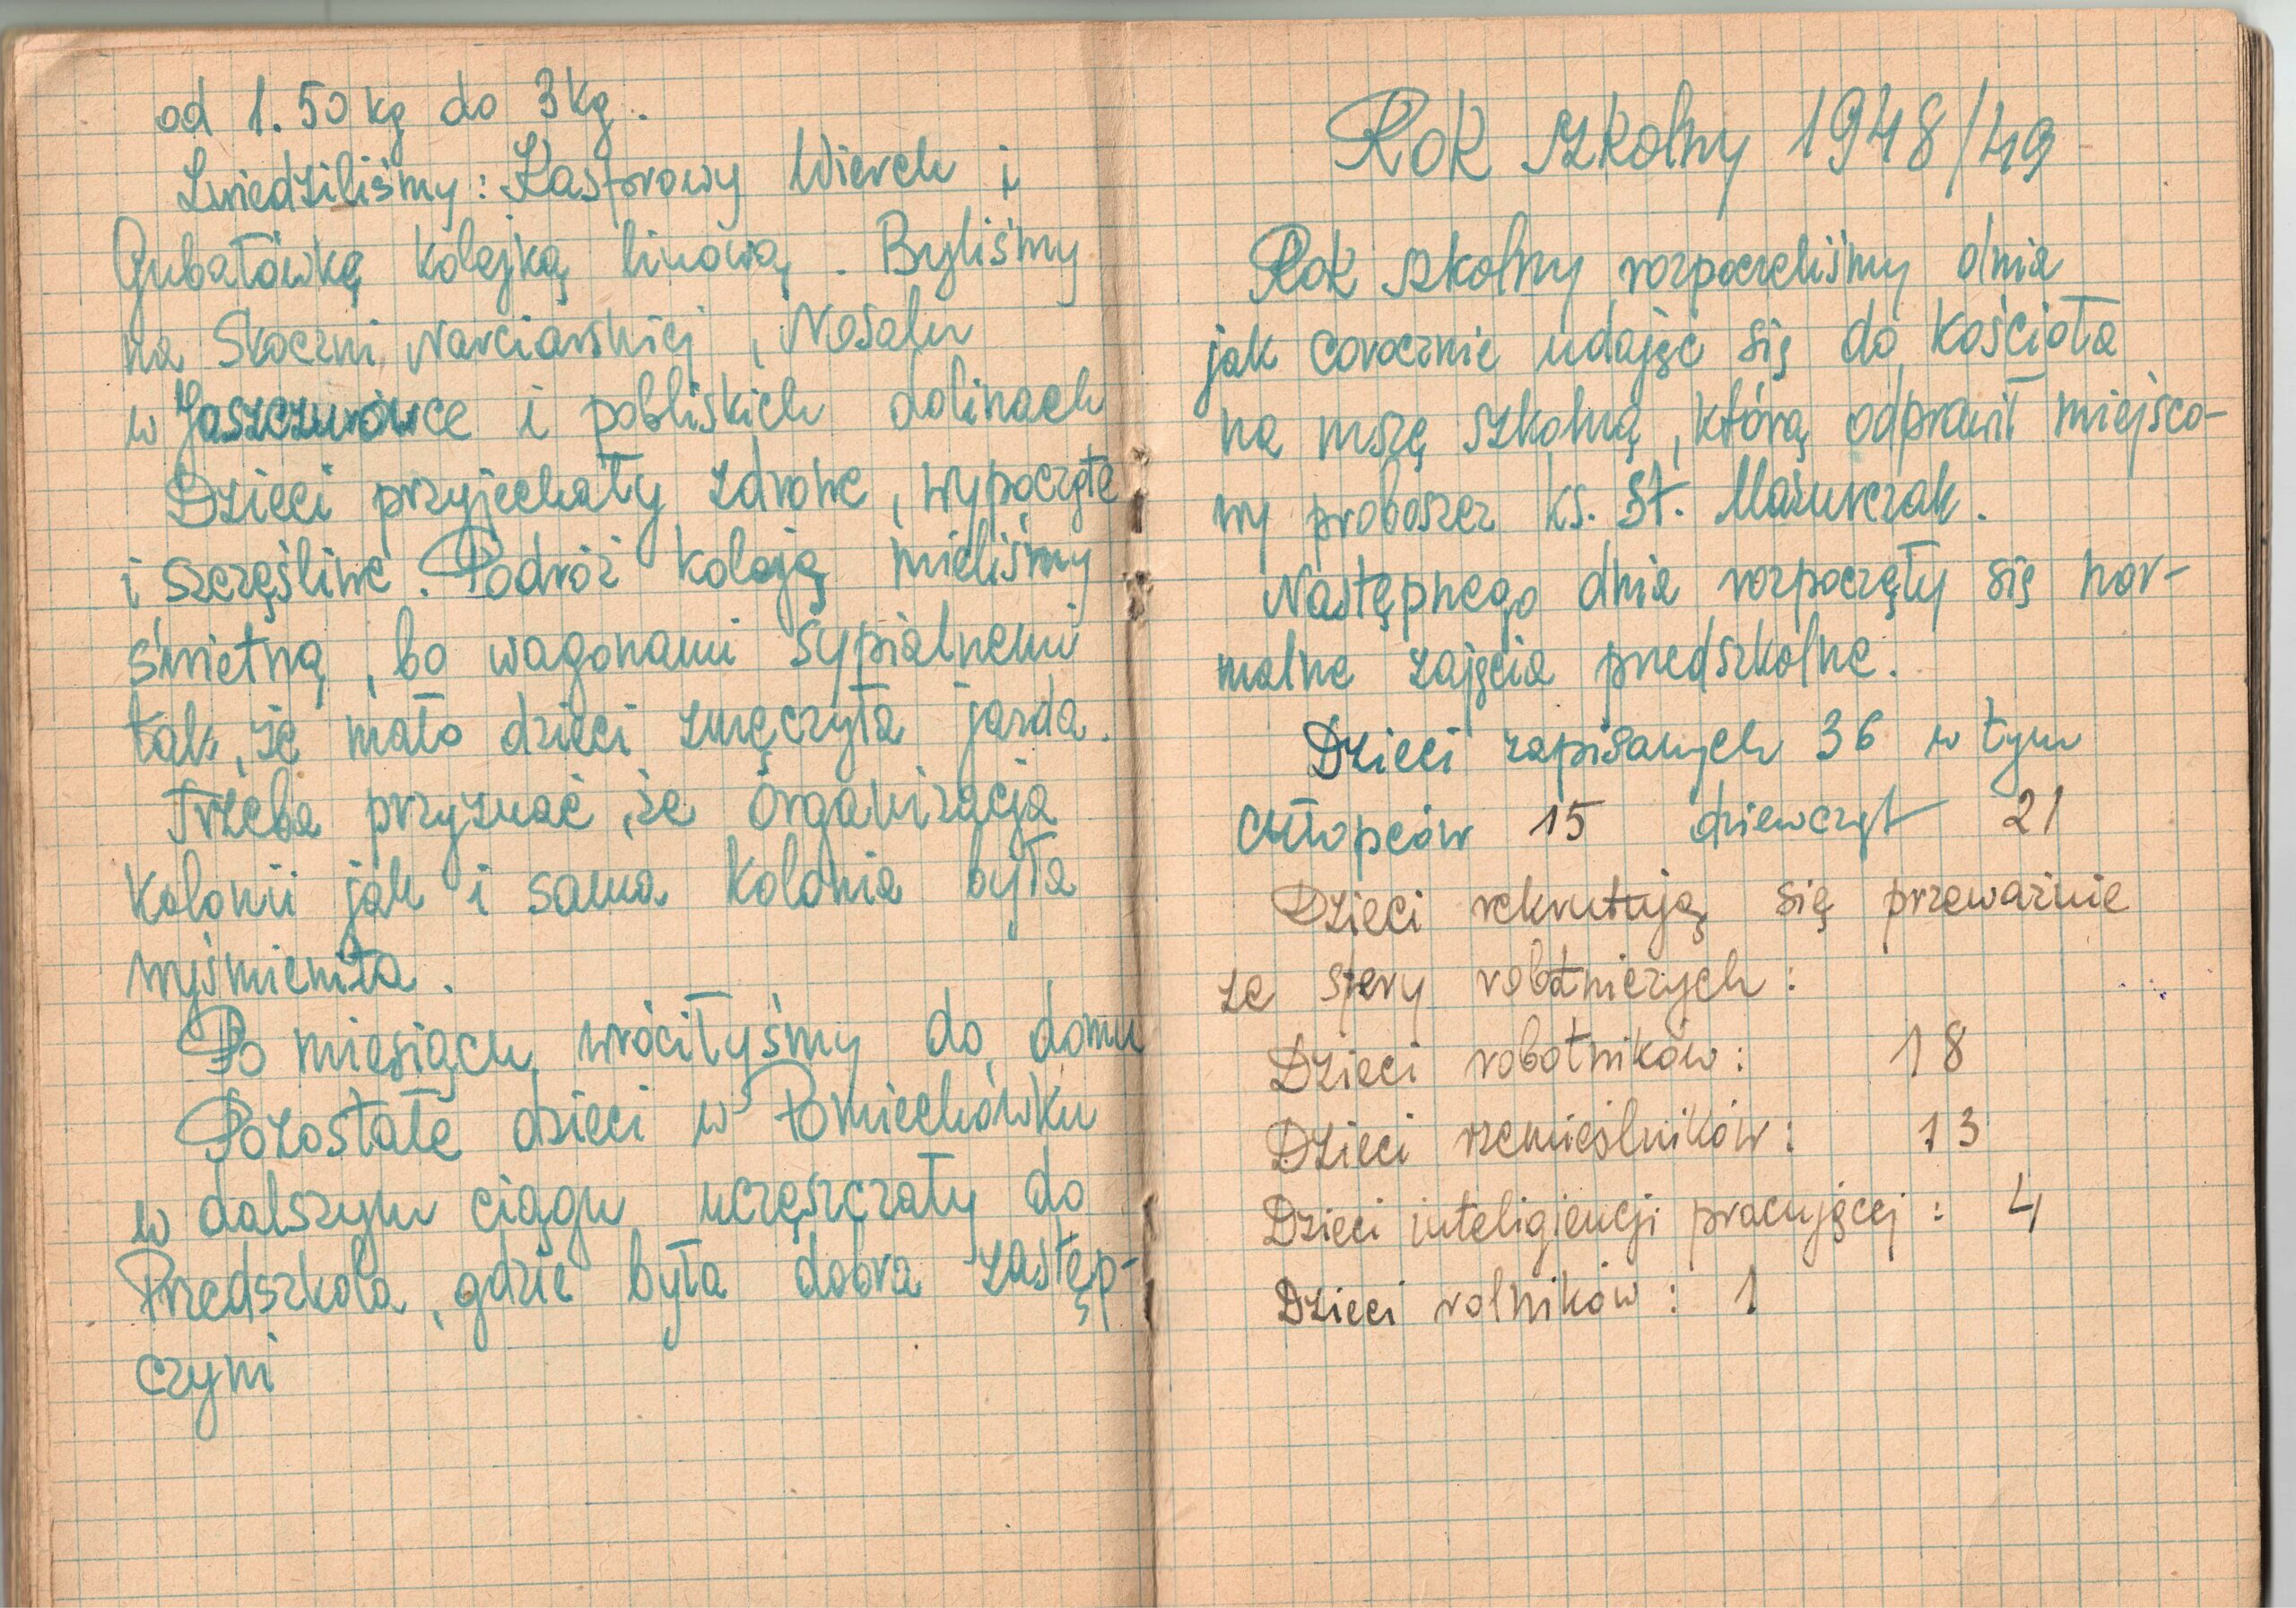 od 1.50 kg do 3 kg.
Zwiedziliśmy: Kasprowy Wierch i
Gubałówkę kolejką linową. Byliśmy
na Skoczni Narciarskiej, Nosalu
w Jaszczurówce i pobliskich dolinach
Dzieci przyjechały zdrowe, wypoczęte
i szczęśliwe. Podróż koleją mieliśmy
świetną, bo wagonami sypialnemi
tak, że mało dzieci zmęczyła jazda.
Trzeba przyznać, że organizacja
Kolonii jak i sama Kolonia była
wyśmienita.
Po miesiącu wróciłyśmy do domu
Pozostałe dzieci w Pomiechówku
w dalszym ciągu uczęszczały do
Przedszkola, gdzie była dobra zastęp-
czyni
Rok szkolny 1948/49
Rok szkolny rozpoczeliśmy dnia
jak corocznie udając się do kościoła
na mszę szkolną, którą odprawił miejsco-
wy proboszcz ks. St. Mazurczak.
Następnego dnia rozpoczęły się nor-
malne zajęcia przedszkolne.
Dzieci zapisanych 36 w tym
chłopców 15 dziewcząt 21
Dzieci rekrutują się przeważnie
ze sfery robotniczych:
Dzieci robotników: 18
Dzieci rzemieślników: 13
Dzieci inteligiencji pracującej: 4
Dzieci rolników: 1